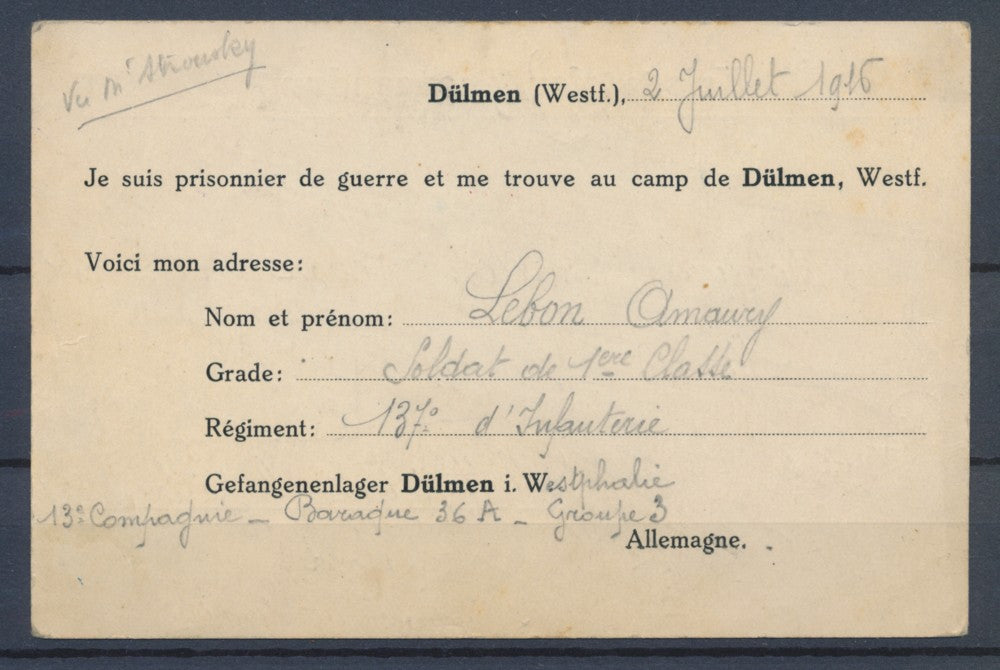 Vu Mr
Dülmen (Westf.), 2 Juillet 1916
Je suis prisonnier de guerre et me trouve au camp de Dülmen, Westf.
Voici mon adresse:
Nom et prénom: Lebon Amaury
Grade: Soldat de 1ere Classe
Régiment: 137e d'Infanterie
Gefangenenlager Dülmen i. Westphalie
13e Compagnie - Baraque 36 A - Groupe 3
Allemagne.